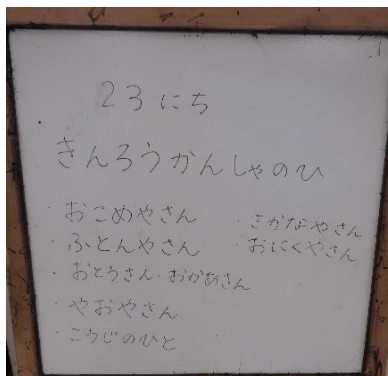 23にち
きんろうかんしゃのひ
・おこめやさん
・ふとんやさん
・おとうさん・おかあさん
・やおやさん
・こうじのひと
・さかなやさん
・おにくやさん